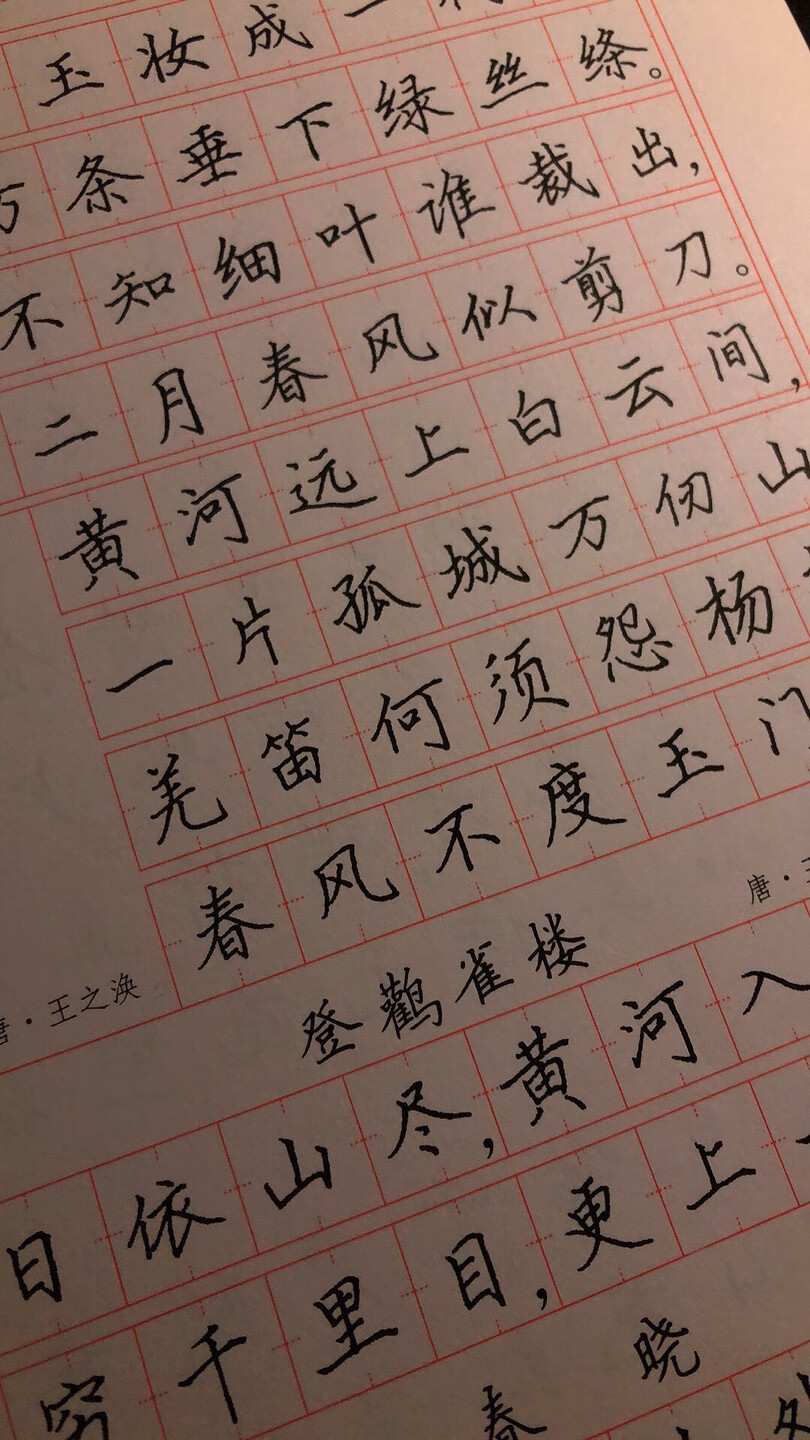 玉妆成一
万条垂下绿丝绦。
不知细叶谁裁出,
二月春风似剪刀。
黄河远上白云间,
一片孤城万仞山
羌笛何须怨杨
春风不度玉门
唐·王之涣
唐·王
登鹳雀楼
日依山尽,黄河入
穷千里目,更上一
春晓
处